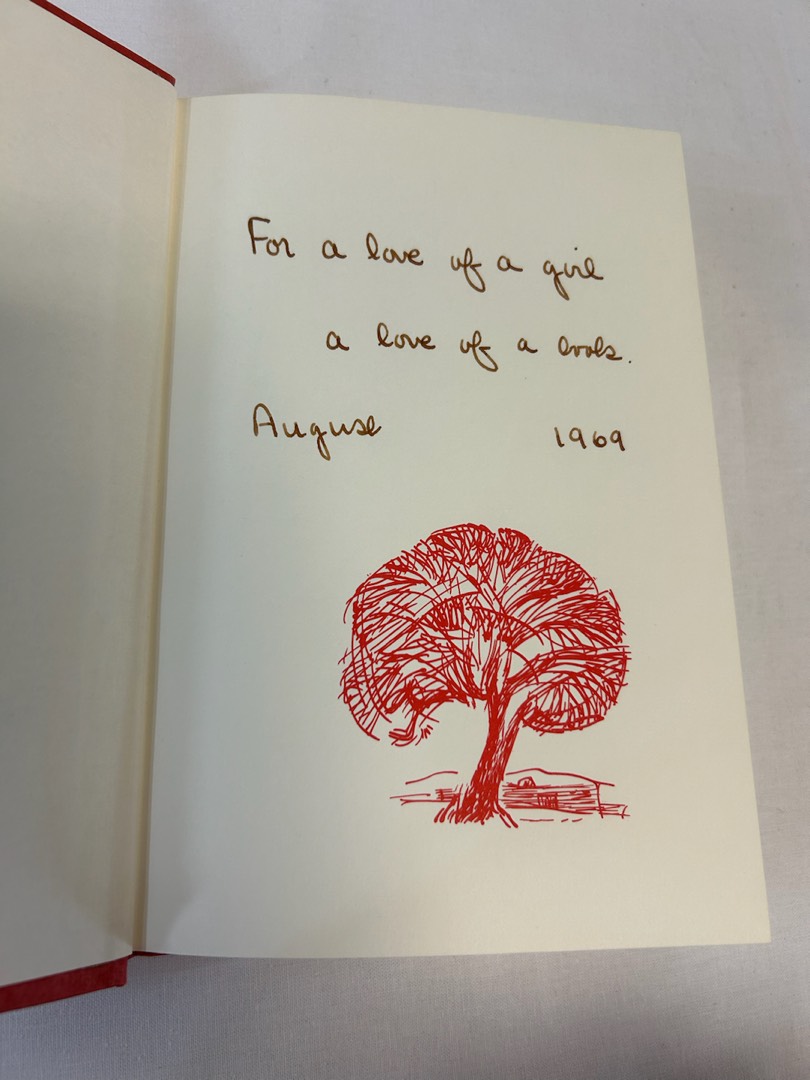 For a love of a girl
a love of a book.
August 1969